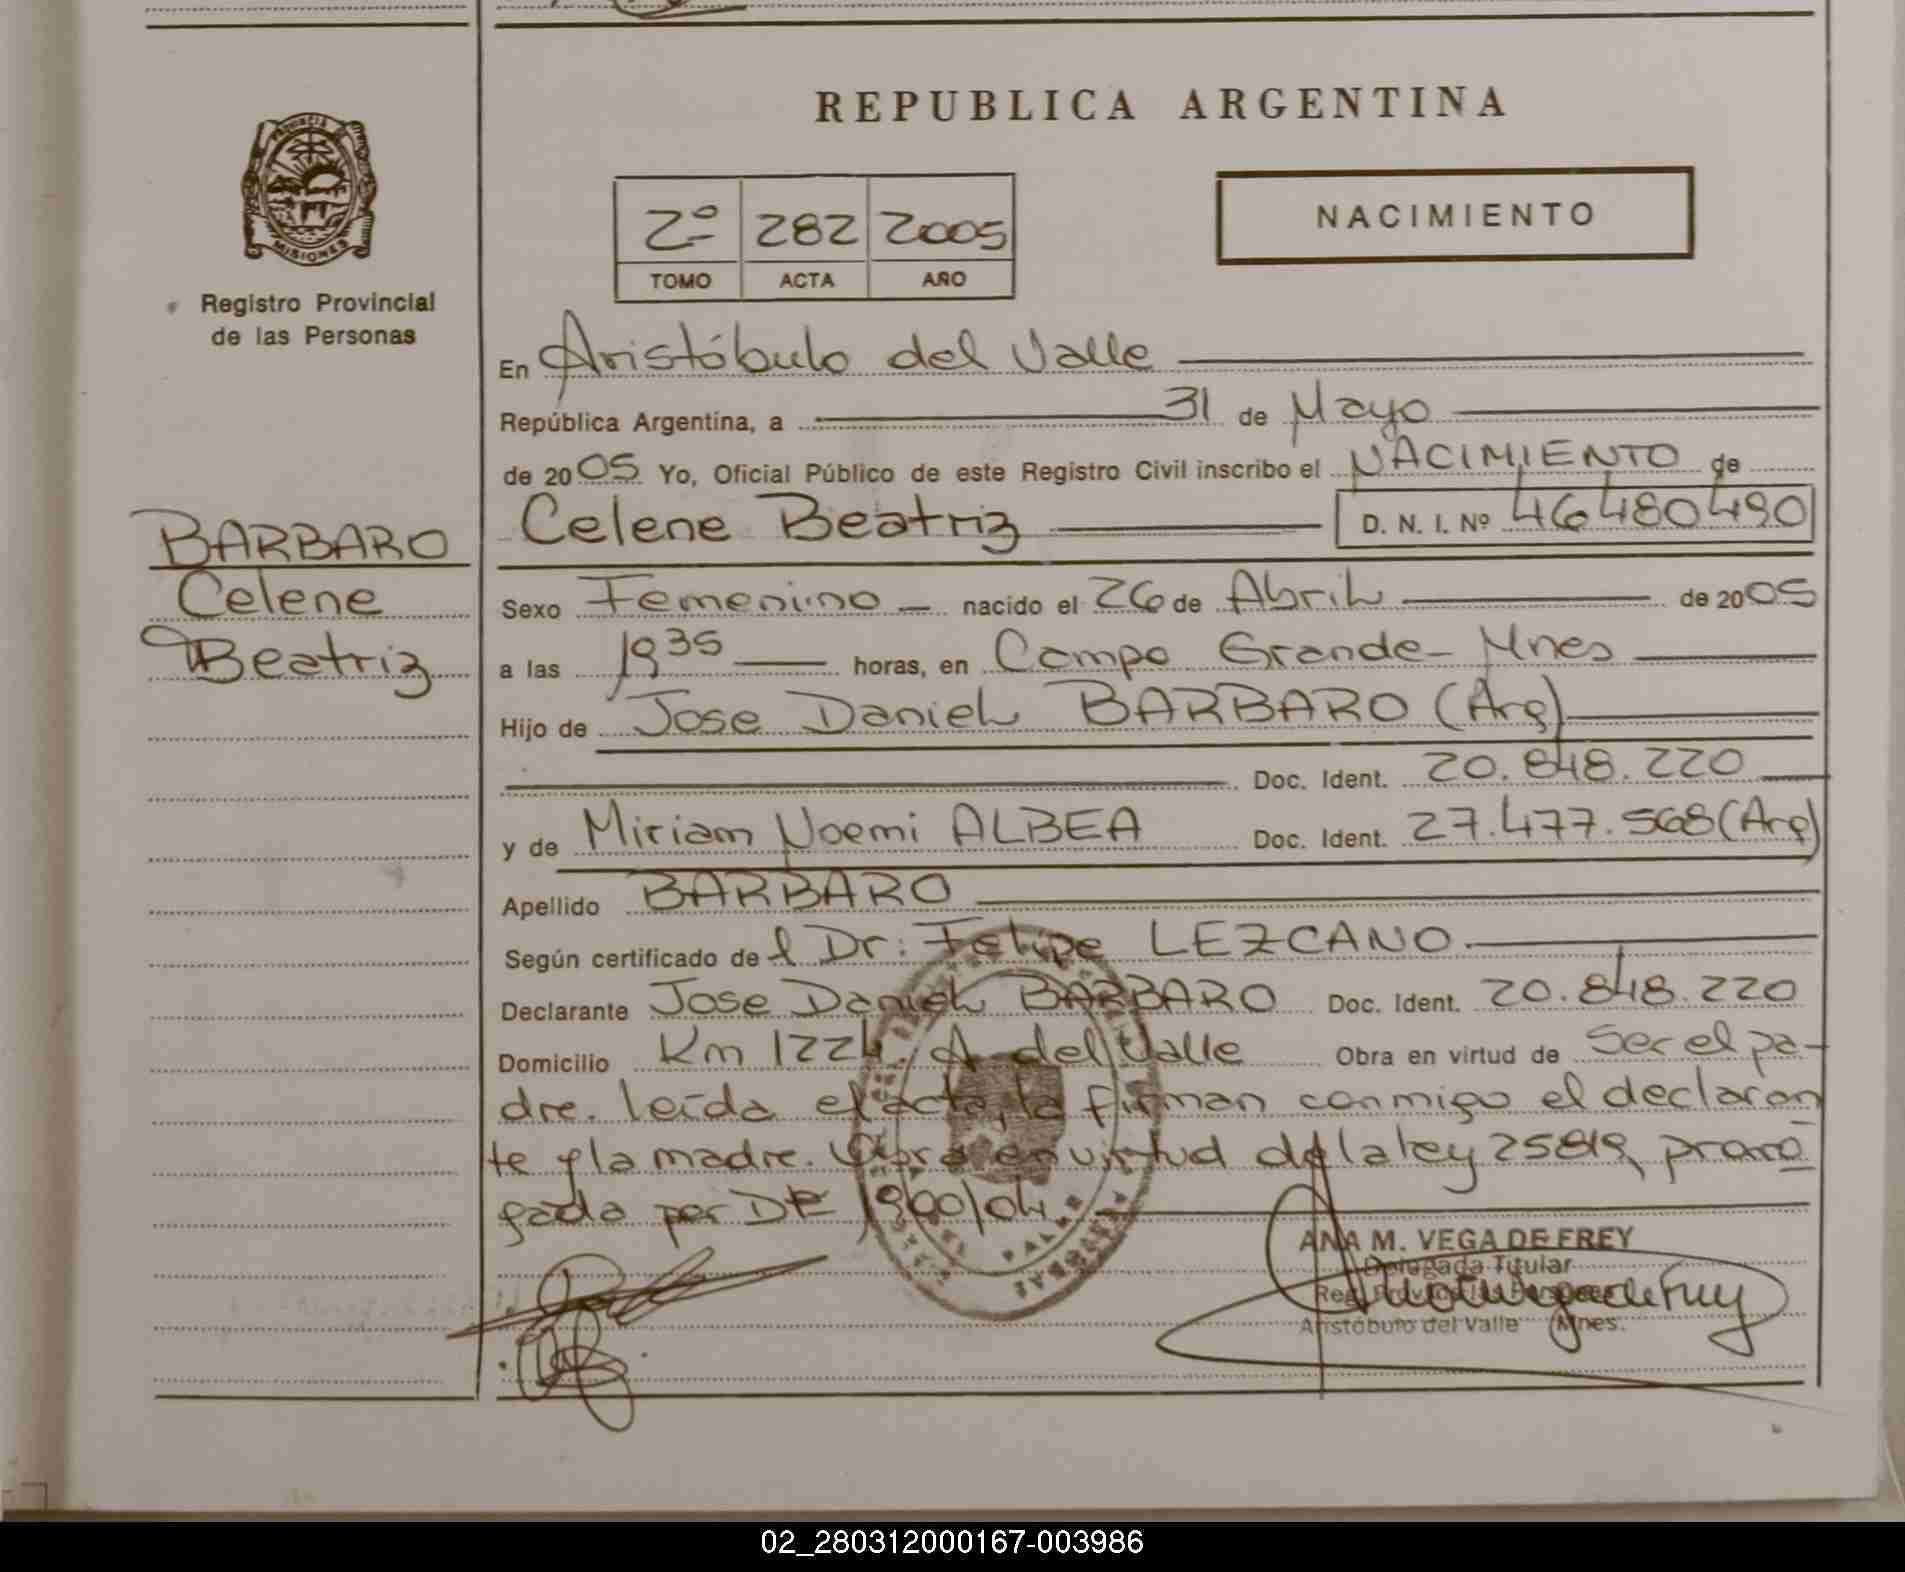 REPUBLICA ARGENTINA
PROVINCIA DE
MISIONES
Registro Provincial
de las Personas
2º 282 2005
TOMO ACTA AÑO
NACIMIENTO
En Aristóbulo del Valle
República Argentina, a 31 de Mayo
de 2005 Yo, Oficial Público de este Registro Civil inscribo el NACIMIENTO de
Celene Beatriz D. N. I. Nº 46480490
BARBARO
Celene
Beatriz
Sexo Femenino nacido el 26 de Abril de 2005
a las 19 35 horas, en Campo Grande - Mnes
Hijo de Jose Daniel BARBARO (Arg)
Doc. Ident. 20.848.220
y de Miriam Noemi ALBEA Doc. Ident. 27.477.568 (Arg)
Apellido BARBARO
Según certificado del Dr: Felipe LEZCANO.
Declarante Jose Daniel BARBARO Doc. Ident. 20.848.220
Domicilio Km 1224 A. del Valle Obra en virtud de Ser el pa-
dre. leída el acta, la firman conmigo el declaran
te y la madre. Obra en virtud de la ley 25819, prorro
gada por DE 1900/04
ANA M. VEGA DE FREY
Delegada Titular
Reg. Prov. de las Personas
Aristóbulo del Valle Mnes.
02_280312000167-003986